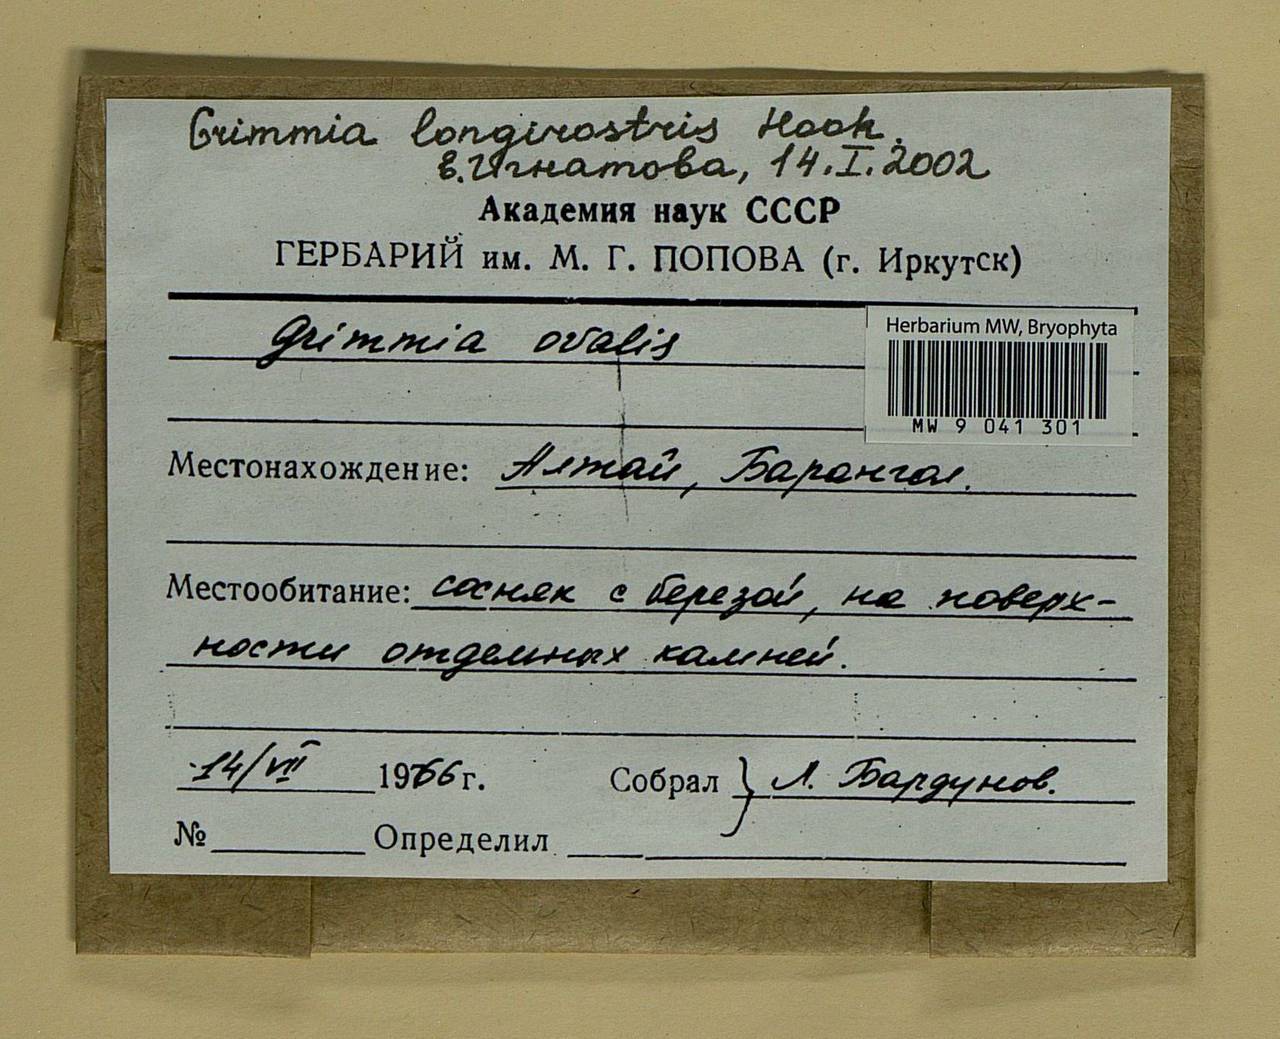 Grimmia longirostris Hook.
Е.Игнатова, 14.I.2002
Академия наук СССР
ГЕРБАРИЙ им. М. Г. ПОПОВА (г. Иркутск)
Grimmia ovalis
Herbarium MW, Bryophyta
MW 9 041 301
Местонахождение: Алтай, Барангол.
Местообитание: сосняк с березой, на поверх-
ности отдельных камней.
14/VII 1966 г. Собрал } Л. Бардунов.
№ Определил